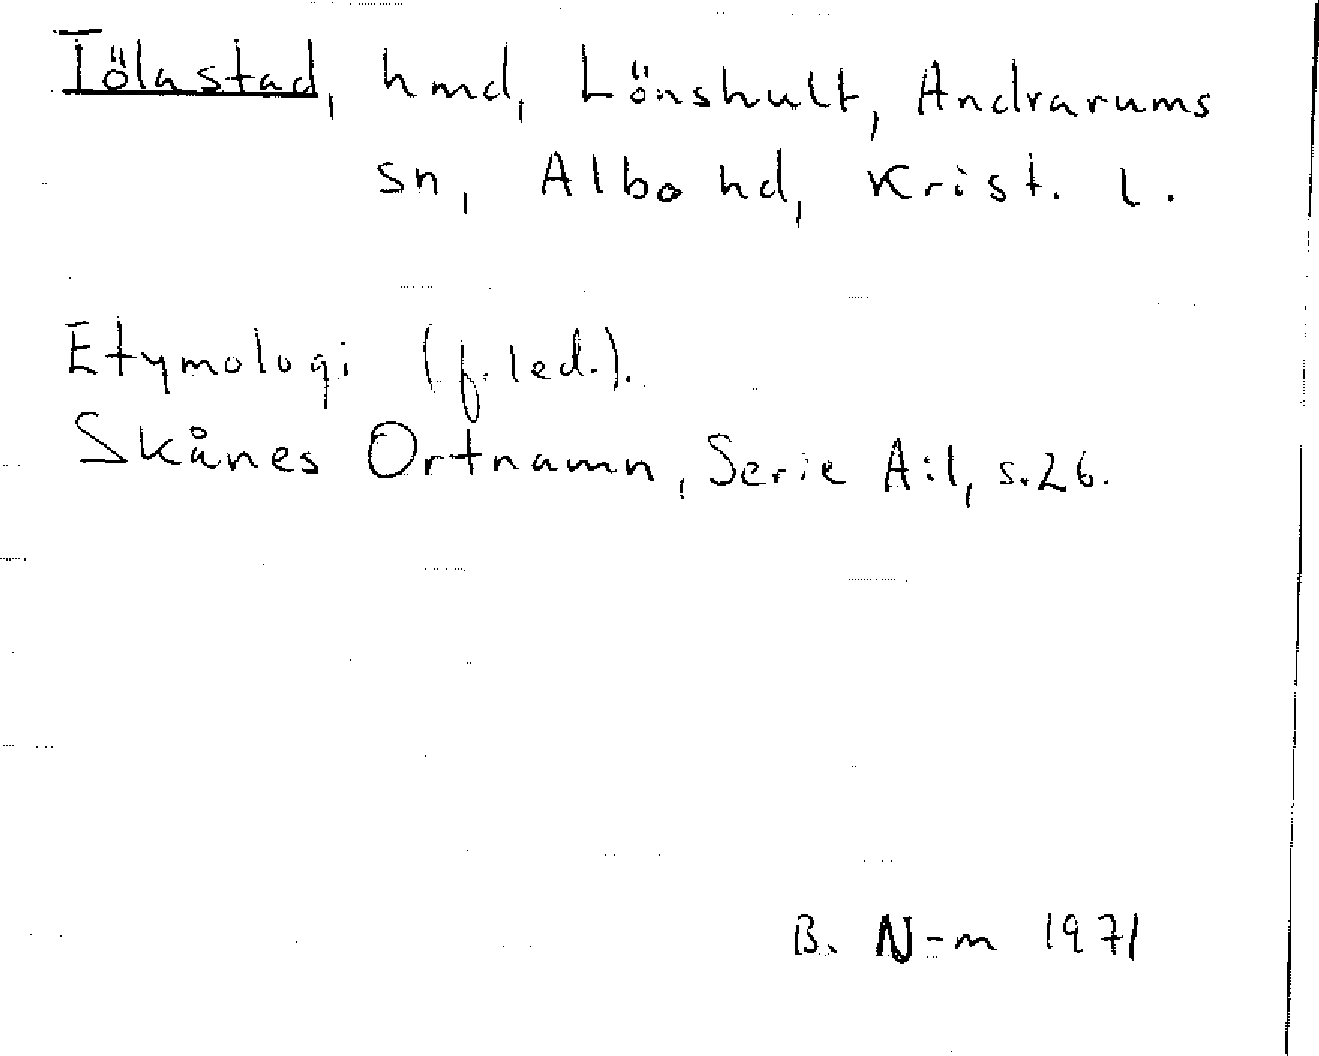 Tölastad, hmd, Lönshult, Andrarums
sn, Albo hd, Krist. l.
Etymologi (f. led.).
Skånes Ortnamn, Serie A:1, s. 26.
B. N-m 1971